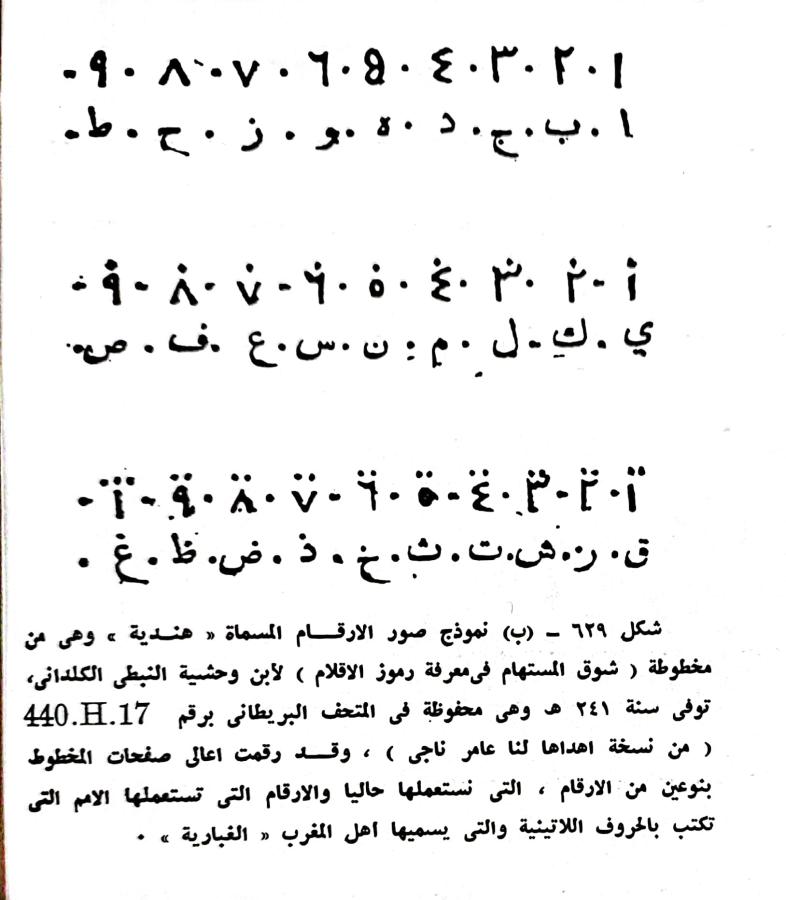 ١ . ٢ . ٣ . ٤ . ٥ . ٦ . ٧ . ٨ . ٩ .
ا . ب . ج . د . ه . و . ز . ح . ط .
١ . ٢ . ٣ . ٤ . ٥ . ٦ . ٧ . ٨ . ٩ .
ي . ك . ل . م . ن . س . ع . ف . ص .
١ . ٢ . ٣ . ٤ . ٥ . ٦ . ٧ . ٨ . ٩ . ١ .
ق . ر . ش . ت . ث . خ . ذ . ض . ظ . غ .
شكل ٦٢٩ – (ب) نموذج صور الارقـــام المسماة « هنـدية » وهى من
مخطوطة ( شوق المستهام فى معرفة رموز الاقلام ) لأبن وحشية النبطى الكلدانى،
توفى سنة ٢٤١ هـ وهى محفوظة فى المتحف البريطانى برقم 440.H.17
( من نسخة اهداها لنا عامر ناجى ) ، وقـــد رقمت اعالى صفحات المخطوط
بنوعين من الارقام ، التى نستعملها حاليا والارقام التى تستعملها الامم التى
تكتب بالحروف اللاتينية والتى يسميها أهل المغرب « الغبارية » ٠